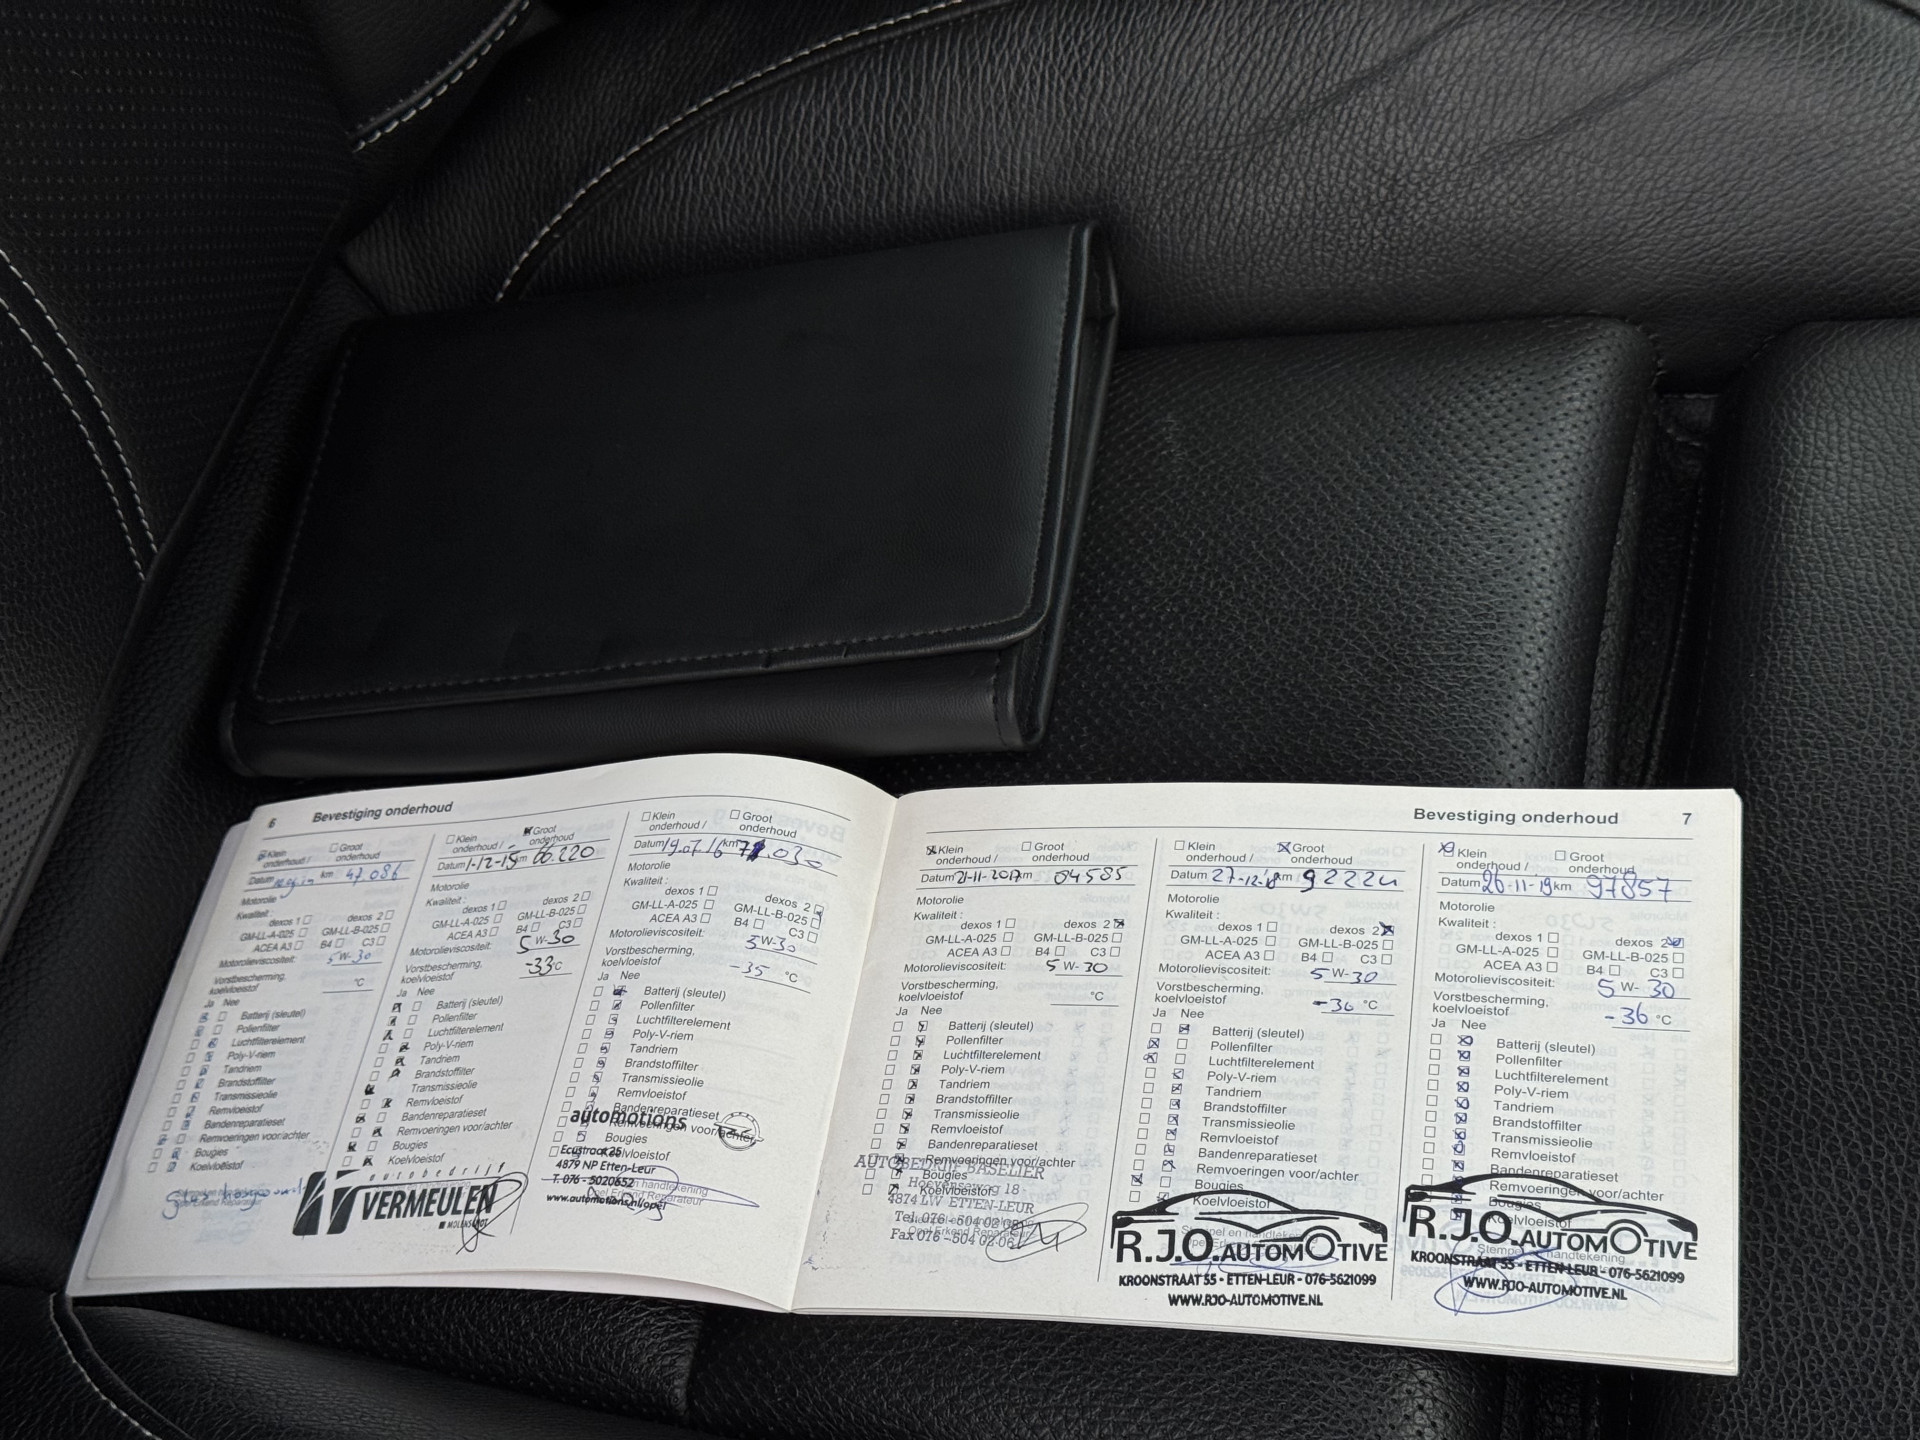 6 Bevestiging onderhoud
Klein onderhoud / Groot onderhoud
Datum km 47.086
Motorolie
Kwaliteit :
dexos 1 dexos 2
GM-LL-A-025 GM-LL-B-025
ACEA A3 B4 C3
Motorolieviscositeit: 5 W-30
Vorstbescherming,
koelvloeistof °C
Ja Nee
Batterij (sleutel)
Pollenfilter
Luchtfilterelement
Poly-V-riem
Tandriem
Brandstoffilter
Transmissieolie
Remvloeistof
Bandenreparatieset
Remvoeringen voor/achter
Bougies
Koelvloeistof
Klein onderhoud / Groot onderhoud
Datum 1-12-15 km 66.220
Motorolie
Kwaliteit :
dexos 1 dexos 2
GM-LL-A-025 GM-LL-B-025
ACEA A3 B4 C3
Motorolieviscositeit: 5 W-30
Vorstbescherming,
koelvloeistof -33 °C
Ja Nee
Batterij (sleutel)
Pollenfilter
Luchtfilterelement
Poly-V-riem
Tandriem
Brandstoffilter
Transmissieolie
Remvloeistof
Bandenreparatieset
Remvoeringen voor/achter
Bougies
Koelvloeistof
autobedrijf
VERMEULEN
Klein onderhoud / Groot onderhoud
Datum 19.07.16 km 71.030
Motorolie
Kwaliteit :
dexos 1 dexos 2
GM-LL-A-025 GM-LL-B-025
ACEA A3 B4 C3
Motorolieviscositeit: 5W-30
Vorstbescherming,
koelvloeistof -35 °C
Ja Nee
Batterij (sleutel)
Pollenfilter
Luchtfilterelement
Poly-V-riem
Tandriem
Brandstoffilter
Transmissieolie
Remvloeistof
Bandenreparatieset
Remvoeringen voor/achter
Bougies
Koelvloeistof
automotions
Ecustraat 25
4879 NP Etten-Leur
T. 076 - 5020652
www.automotions.nl/opel
Bevestiging onderhoud 7
Klein onderhoud / Groot onderhoud
Datum 21-11-2017 km 04585
Motorolie
Kwaliteit :
dexos 1 dexos 2
GM-LL-A-025 GM-LL-B-025
ACEA A3 B4 C3
Motorolieviscositeit: 5 W-30
Vorstbescherming,
koelvloeistof °C
Ja Nee
Batterij (sleutel)
Pollenfilter
Luchtfilterelement
Poly-V-riem
Tandriem
Brandstoffilter
Transmissieolie
Remvloeistof
Bandenreparatieset
Remvoeringen voor/achter
Bougies
Koelvloeistof
AUTOBEDRIJF BASELIER
Hoevenseweg 18
4874 LW ETTEN-LEUR
Tel. 076 - 504 02 08
Fax 076 - 504 02 06
Klein onderhoud / Groot onderhoud
Datum 27-12-18 km 92224
Motorolie
Kwaliteit :
dexos 1 dexos 2
GM-LL-A-025 GM-LL-B-025
ACEA A3 B4 C3
Motorolieviscositeit: 5 W-30
Vorstbescherming,
koelvloeistof -36 °C
Ja Nee
Batterij (sleutel)
Pollenfilter
Luchtfilterelement
Poly-V-riem
Tandriem
Brandstoffilter
Transmissieolie
Remvloeistof
Bandenreparatieset
Remvoeringen voor/achter
Bougies
Koelvloeistof
Stempel en handtekening
R.J.O. AUTOMOTIVE
KROONSTRAAT 55 - ETTEN-LEUR - 076-5621099
WWW.RJO-AUTOMOTIVE.NL
Klein onderhoud / Groot onderhoud
Datum 26-11-19 km 97857
Motorolie
Kwaliteit :
dexos 1 dexos 2
GM-LL-A-025 GM-LL-B-025
ACEA A3 B4 C3
Motorolieviscositeit: 5 W-30
Vorstbescherming,
koelvloeistof -36 °C
Ja Nee
Batterij (sleutel)
Pollenfilter
Luchtfilterelement
Poly-V-riem
Tandriem
Brandstoffilter
Transmissieolie
Remvloeistof
Bandenreparatieset
Remvoeringen voor/achter
Bougies
Koelvloeistof
R.J.O. AUTOMOTIVE
Stempel en handtekening
KROONSTRAAT 55 - ETTEN-LEUR - 076-5621099
WWW.RJO-AUTOMOTIVE.NL